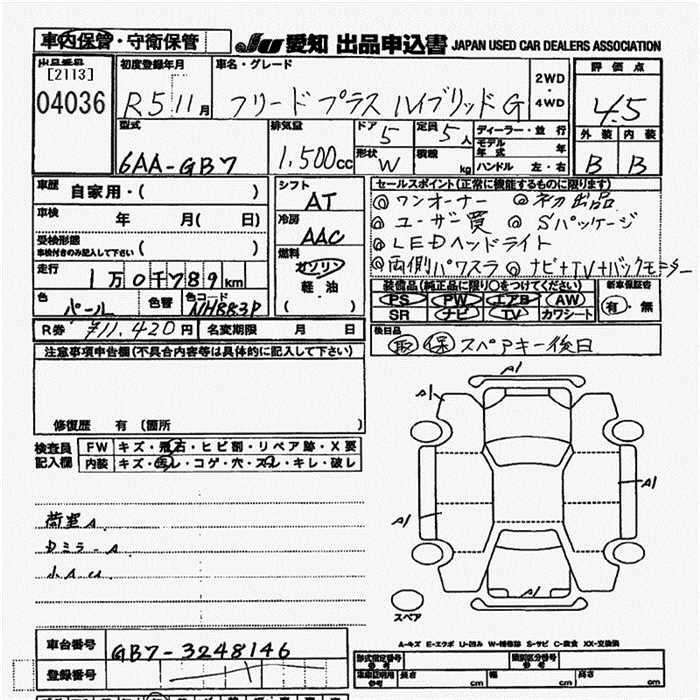 車内保管・守衛保管 JU 愛知 出品申込書 JAPAN USED CAR DEALERS ASSOCIATION
出品番号 初度登録年月 車名・グレード 2WD・4WD 評価点
[2113]
04036 R5 11月 フリード プラス ハイブリッド G 4.5
型式 排気量 ドア 5 定員 5人 ディーラー・並行 外装 内装
6AA-GB7 1,500cc 形状 W 積載 kg モデル年式 年 B B
ハンドル 左・右
車歴 自家用・( ) シフト AT セールスポイント(正常に機能するものに限ります)
車検 年 月( 日) 冷房 AAC ◎ワンオーナー ◎初出品
受検形態 車検付きのみ記入して下さい ( ) ◎ユーザー買 ◎Sパッケージ
◎LEDヘッドライト
走行 1万0千789km 燃料 ガソリン 軽・油 ( ) ◎両側パワスラ ◎ナビ+TV+バックモニター
色 パール 色替 色コード NH883P 装備品(純正品に限り○をつけてください) 新車保証書
PS PW エアB AW 有・無
SR ナビ TV カワシート
R券 ¥11,420円 名変期限 月 日 後日品
取 保 スペアキー後日
注意事項申告欄(不具合内容等は具体的に記入して下さい)
修復歴 有 (箇所 )
検査員記入欄 FW キズ・飛石・ヒビ割・リペア跡・X要
内装 キズ・汚レ・コゲ・穴・スレ・キレ・破レ
A1
A1
A1
A1
A1
荷室A
Dミラ-A
小AU
スペア
A-キズ E-エクボ U-凹み W-補修跡 S-サビ C-腐食 XX-交換済
車台番号 GB7-3248146
登録番号
型式指定番号 参考 類別区分番号 参考
車庫証明用 参考 長さ cm 幅 cm 高さ cm